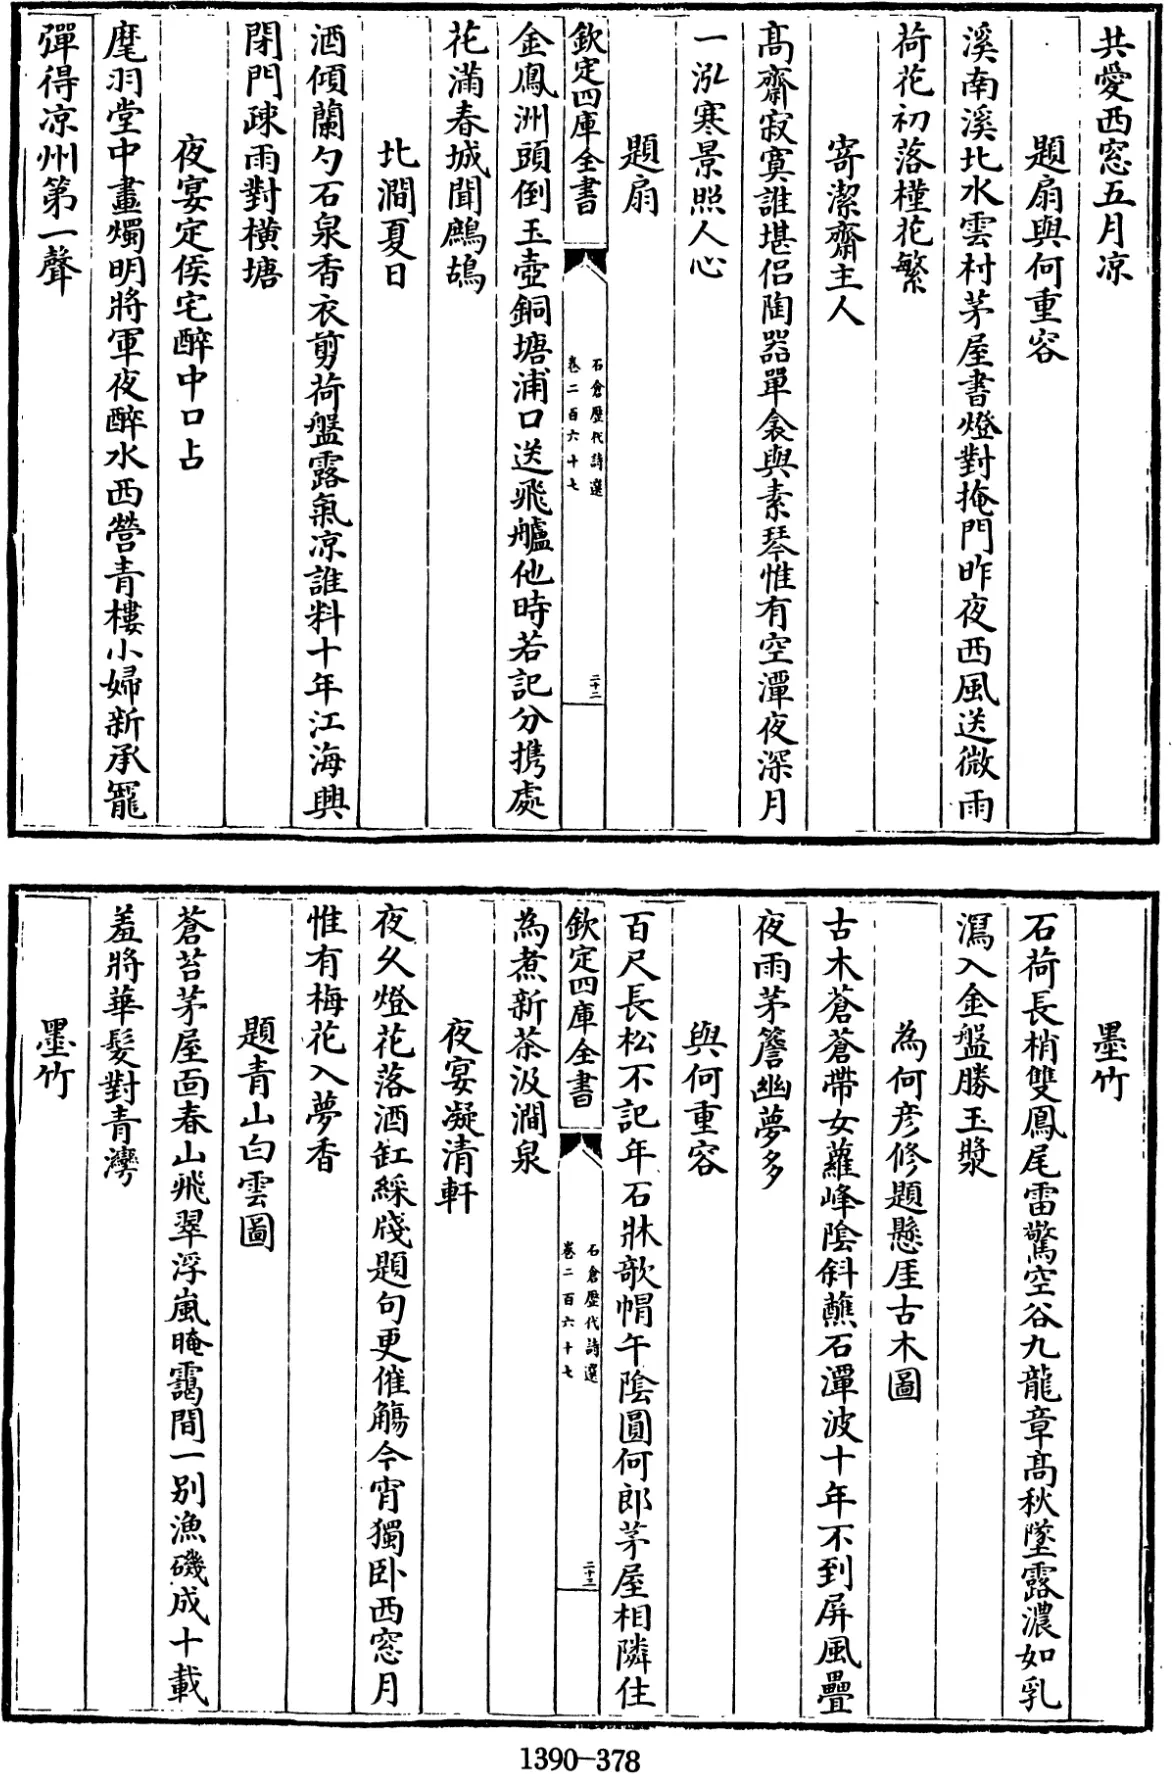 共愛西窓五月凉
題扇與何重容
溪南溪北水雲村茅屋書燈對掩門昨夜西風送微雨
荷花初落槿花繁
寄潔齋主人
髙齋寂寞誰堪侣陶器單衾與素琴惟有空潭夜深月
一泓寒景照人心
題扇
欽定四庫全書
石倉歴代詩選
卷二百六十七
二十二
金鳳洲頭倒玉壺銅塘浦口送飛艫他時若記分携處
花滿春城聞鷓鴣
北澗夏日
酒傾蘭勺石泉香衣剪荷盤露氣凉誰料十年江海興
閉門疎雨對横塘
夜宴定侯宅醉中口占
麾羽堂中畫燭明將軍夜醉水西營青樓小婦新承寵
彈得凉州第一聲
墨竹
石荷長梢雙鳳尾雷驚空谷九龍章髙秋墜露濃如乳
瀉入金盤勝玉漿
為何彦修題懸厓古木圖
古木蒼蒼帶女蘿峰陰斜蘸石潭波十年不到屏風疊
夜雨茅簷幽夢多
與何重容
百尺長松不記年石牀欹帽午陰圓何郎茅屋相隣住
欽定四庫全書
石倉歴代詩選
卷二百六十七
二十三
為煮新茶汲澗泉
夜宴凝清軒
夜久燈花落酒缸綵牋題句更催觴今宵獨卧西窓月
惟有梅花入夢香
題青山白雲圖
蒼苔茅屋面春山飛翠浮嵐晻靄間一别漁磯成十載
羞將華髮對青灣
墨竹
1390-378